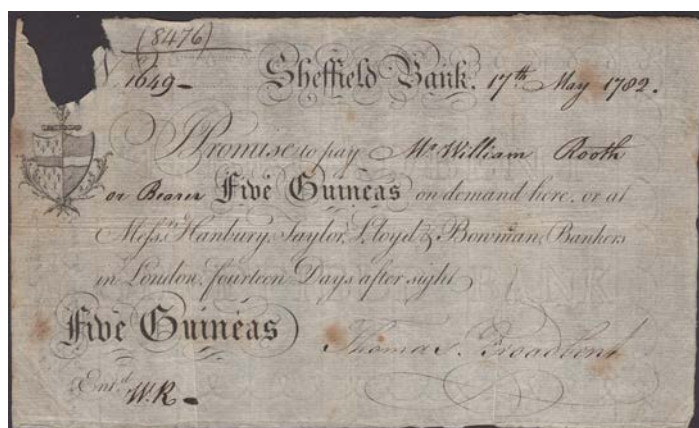 (8476)
N. 1649 - Sheffield Bank. 17th May 1782.
I Promise to pay Mr. William Rooth
or Bearer Five Guineas on demand here, or at
Messrs. Hanbury, Taylor, Lloyd & Bowman, Bankers
in London, fourteen Days after sight
Five Guineas Thomas Broadbent
Entd. W.R -